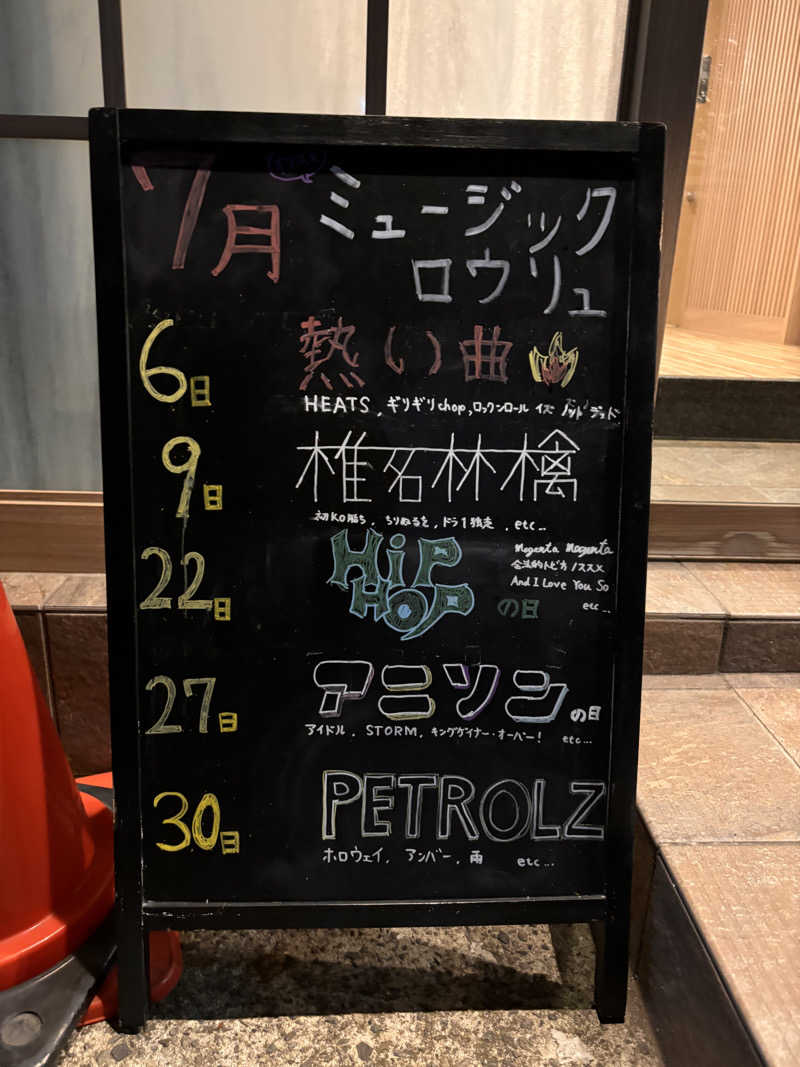 7月 ミュージック
ロウリュ
6日 熱い曲
HEATS, ギリギリchop, ロックンロール イズ ノットデッド
9日 椎名林檎
初KO勝ち, ちりぬるを, ドラ1独走, etc...
22日 HiP HOP の日
Magenta Magenta
合法的トビ方ノススメ
And I Love You So
etc...
27日 アニソンの日
アイドル, STORM, キングゲイナー・オーバー! etc...
30日 PETROLZ
ホロウェイ, アンバー, 雨 etc...